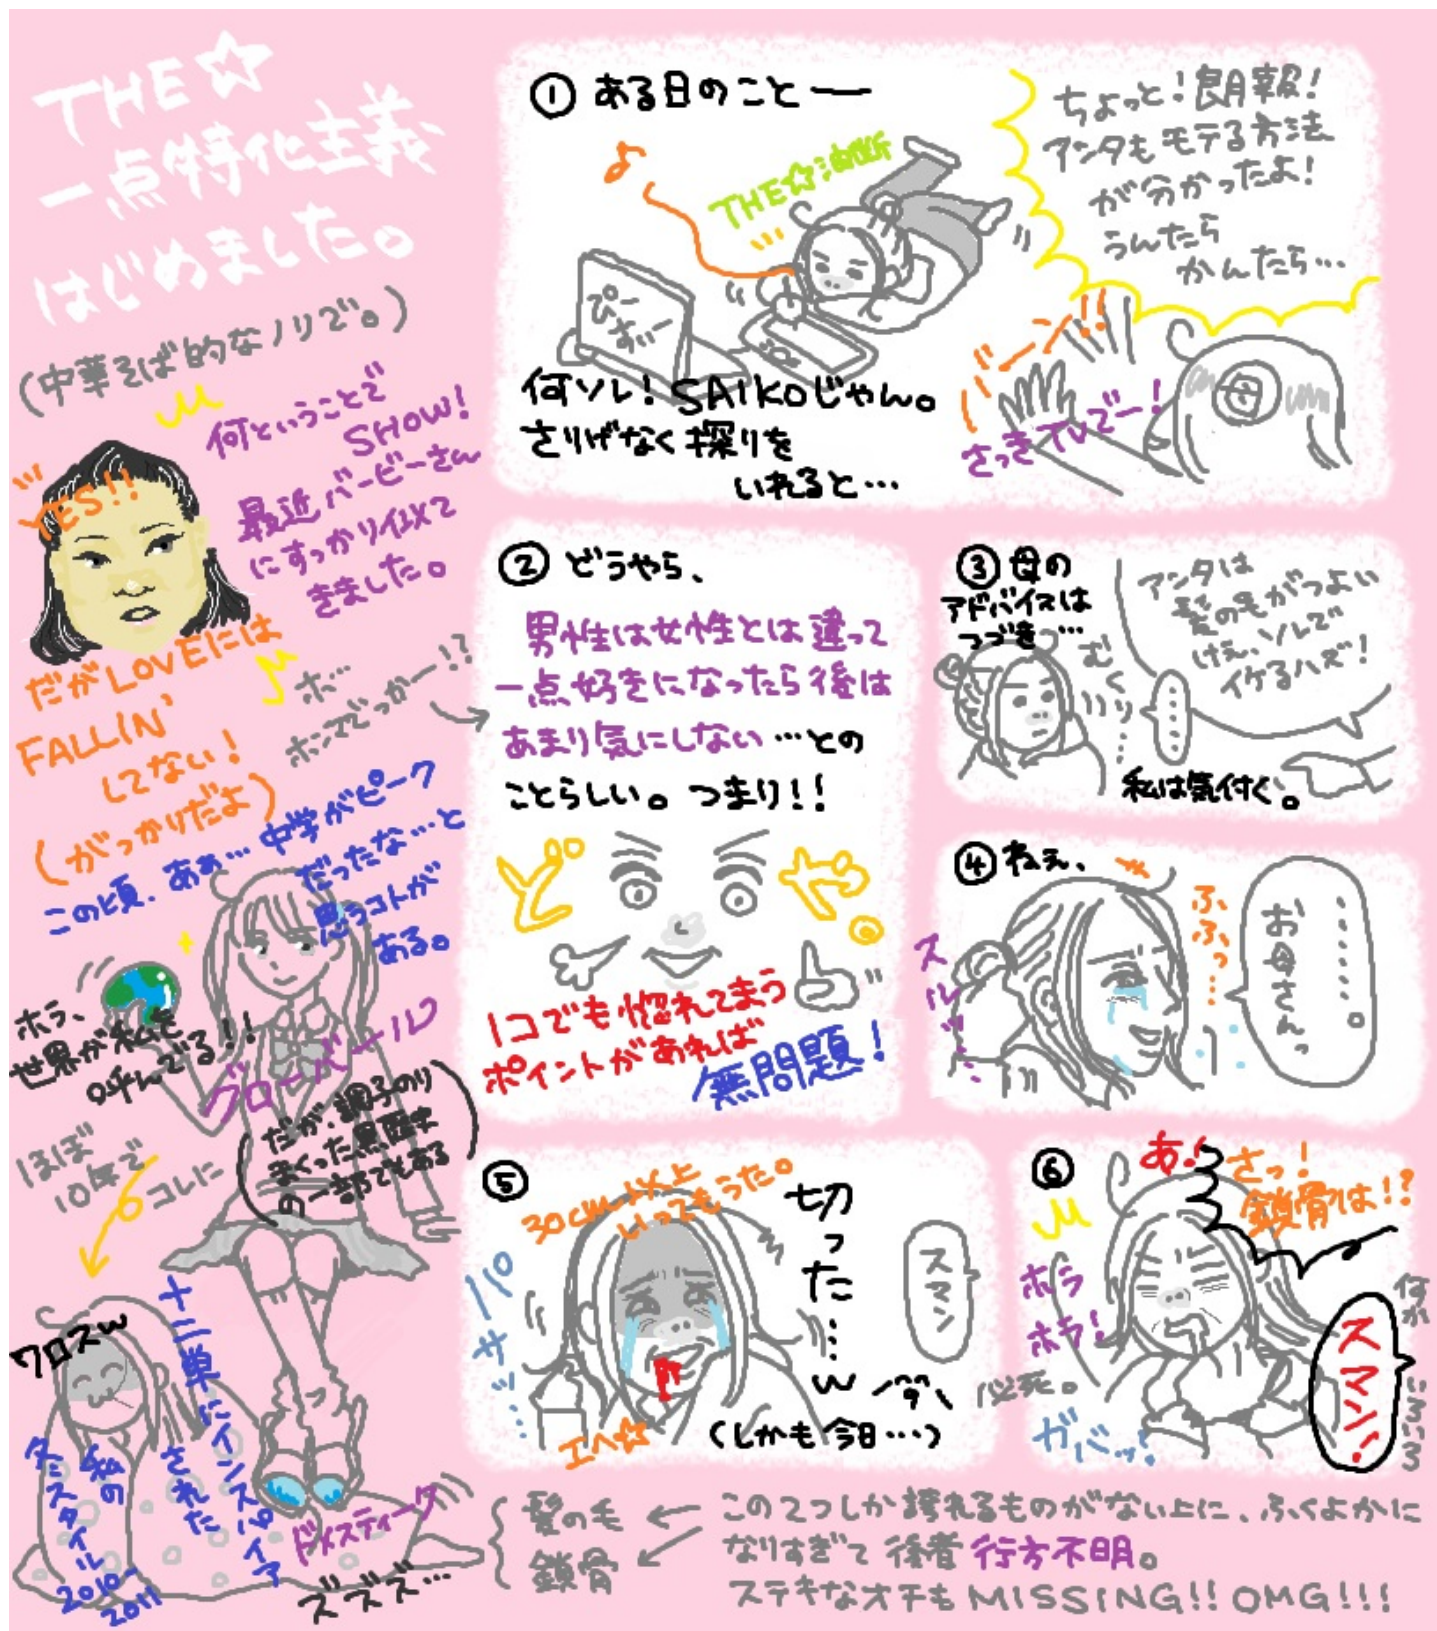 THE☆
一点特化主義
はじめました。
(中華そば的なノリで。)
何ということで
SHOW!
最近バービーさん
にすっかり似て
きました。
YES!!
だがLOVEには
FALLIN'
してない!
(がっかりだよ)
ホ…
ホンマでっかー!?
この頃、ああ…中学がピーク
だったな…と
思うコトが
ある。
ホラ、
世界が私を
呼んでる!!
グローバール
(だが、調子のり
まくった黒歴史
の一部でもある)
ほぼ
10年で
コレに
ワロスw
十二単に
インスパイア
された
私の
冬スタイル
2010-
2011
ドメスティーク
ズズズ…
① ある日のこと―
THE☆油断
ぴー
すぃー
ちょっと!朗報!
アンタもモテる方法
が分かったよ!
うんたら
かんたら…
バーン!!
さっきTVでー!
母
何ソレ! SAIKOじゃん。
さりげなく探りを
いれると…
② どうやら、
男性は女性とは違って
一点好きになったら後は
あまり気にしない…との
ことらしい。つまり!!
どや。
1コでも惚れてまう
ポイントがあれば
無問題!
③ 母の
アドバイスは
つづき…
アンタは
髪の毛がつよい
けぇ、ソレで
イケるハズ!
むくり…
……
私は気付く。
④ ねぇ、
ふふふっ…
スルッ…
……。
お母さんっ
⑤
30cm以上
いってもうた。
切った…w
スマン
パサッ…
エヘ☆
(しかも今日…)
⑥
あ!
さっ!
鎖骨は!?
ホラ
ホラ!
必死。
ガバッ!
スマン!
何か
いろいろ
髪の毛
鎖骨
この2つしか誇れるものがない上に、ふくよかに
なりすぎて後者行方不明。
ステキなオチもMISSING!! OMG!!!